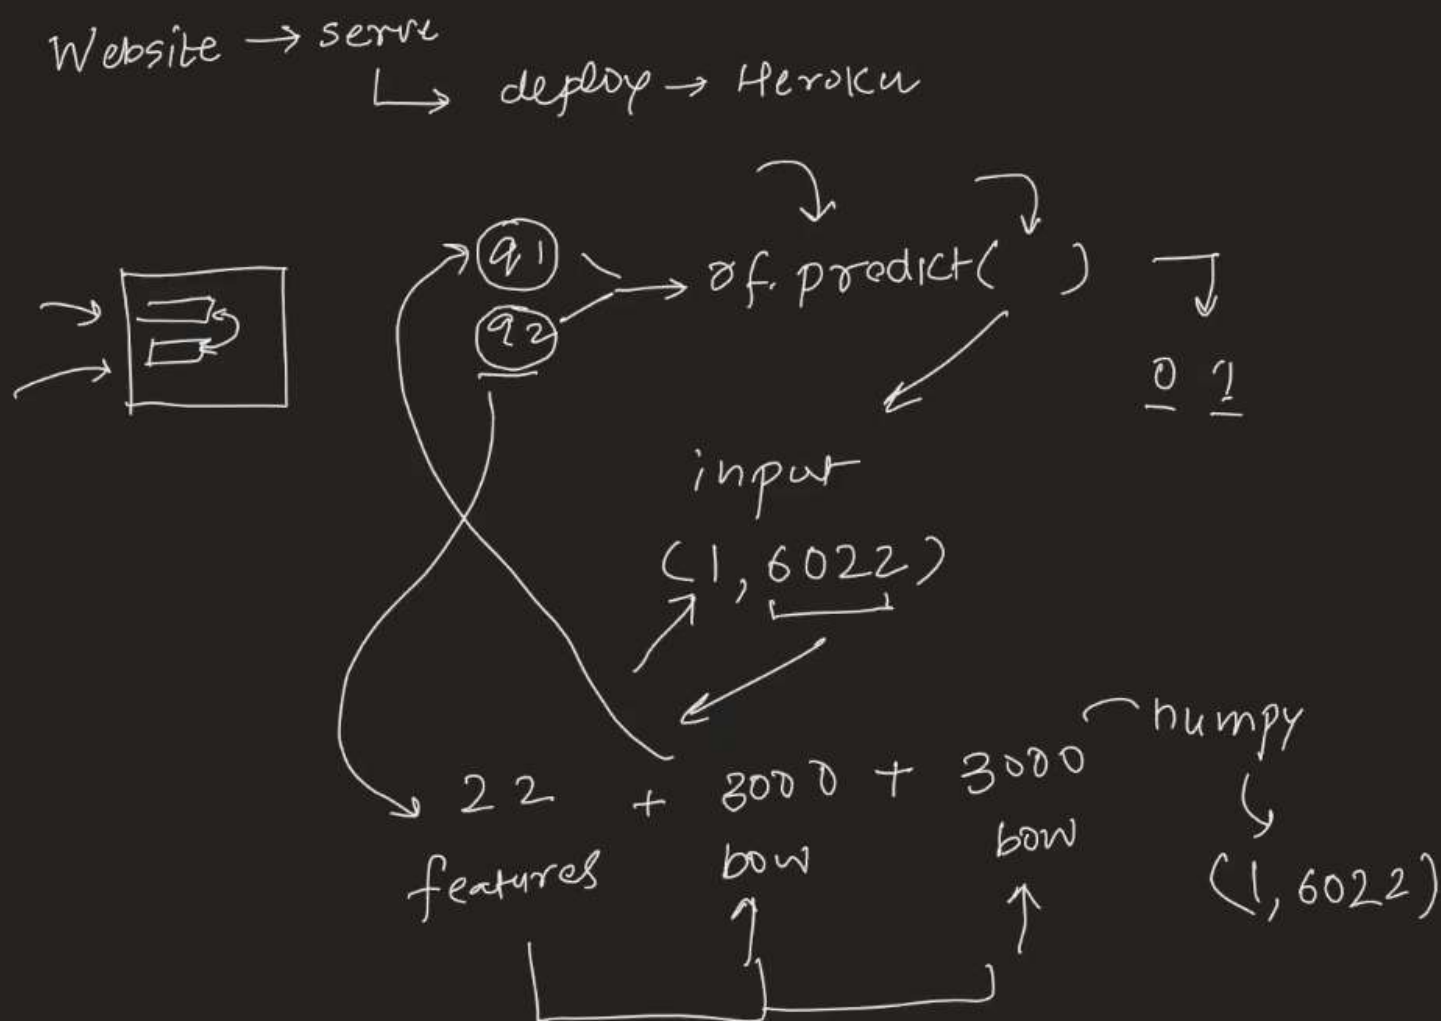 Website → serve
↳ deploy → Heroku
q1
q2
rf.predict( )
0 1
input
(1, 6022)
numpy
22 + 3000 + 3000
features bow bow
(1, 6022)